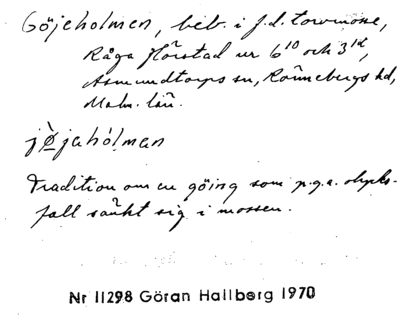 Göjeholmen, beb. i f.d. torvmosse,
Råga Hörstad nr 6¹⁰ och 3¹²,
Asmundtorps sn, Rönnebergs hd,
Malm. län.
jø̀jahòlman
Tradition om en göing som p.g.a. olycks-
fall sänkt sig i mossen.
Nr 11298 Göran Hallberg 1970